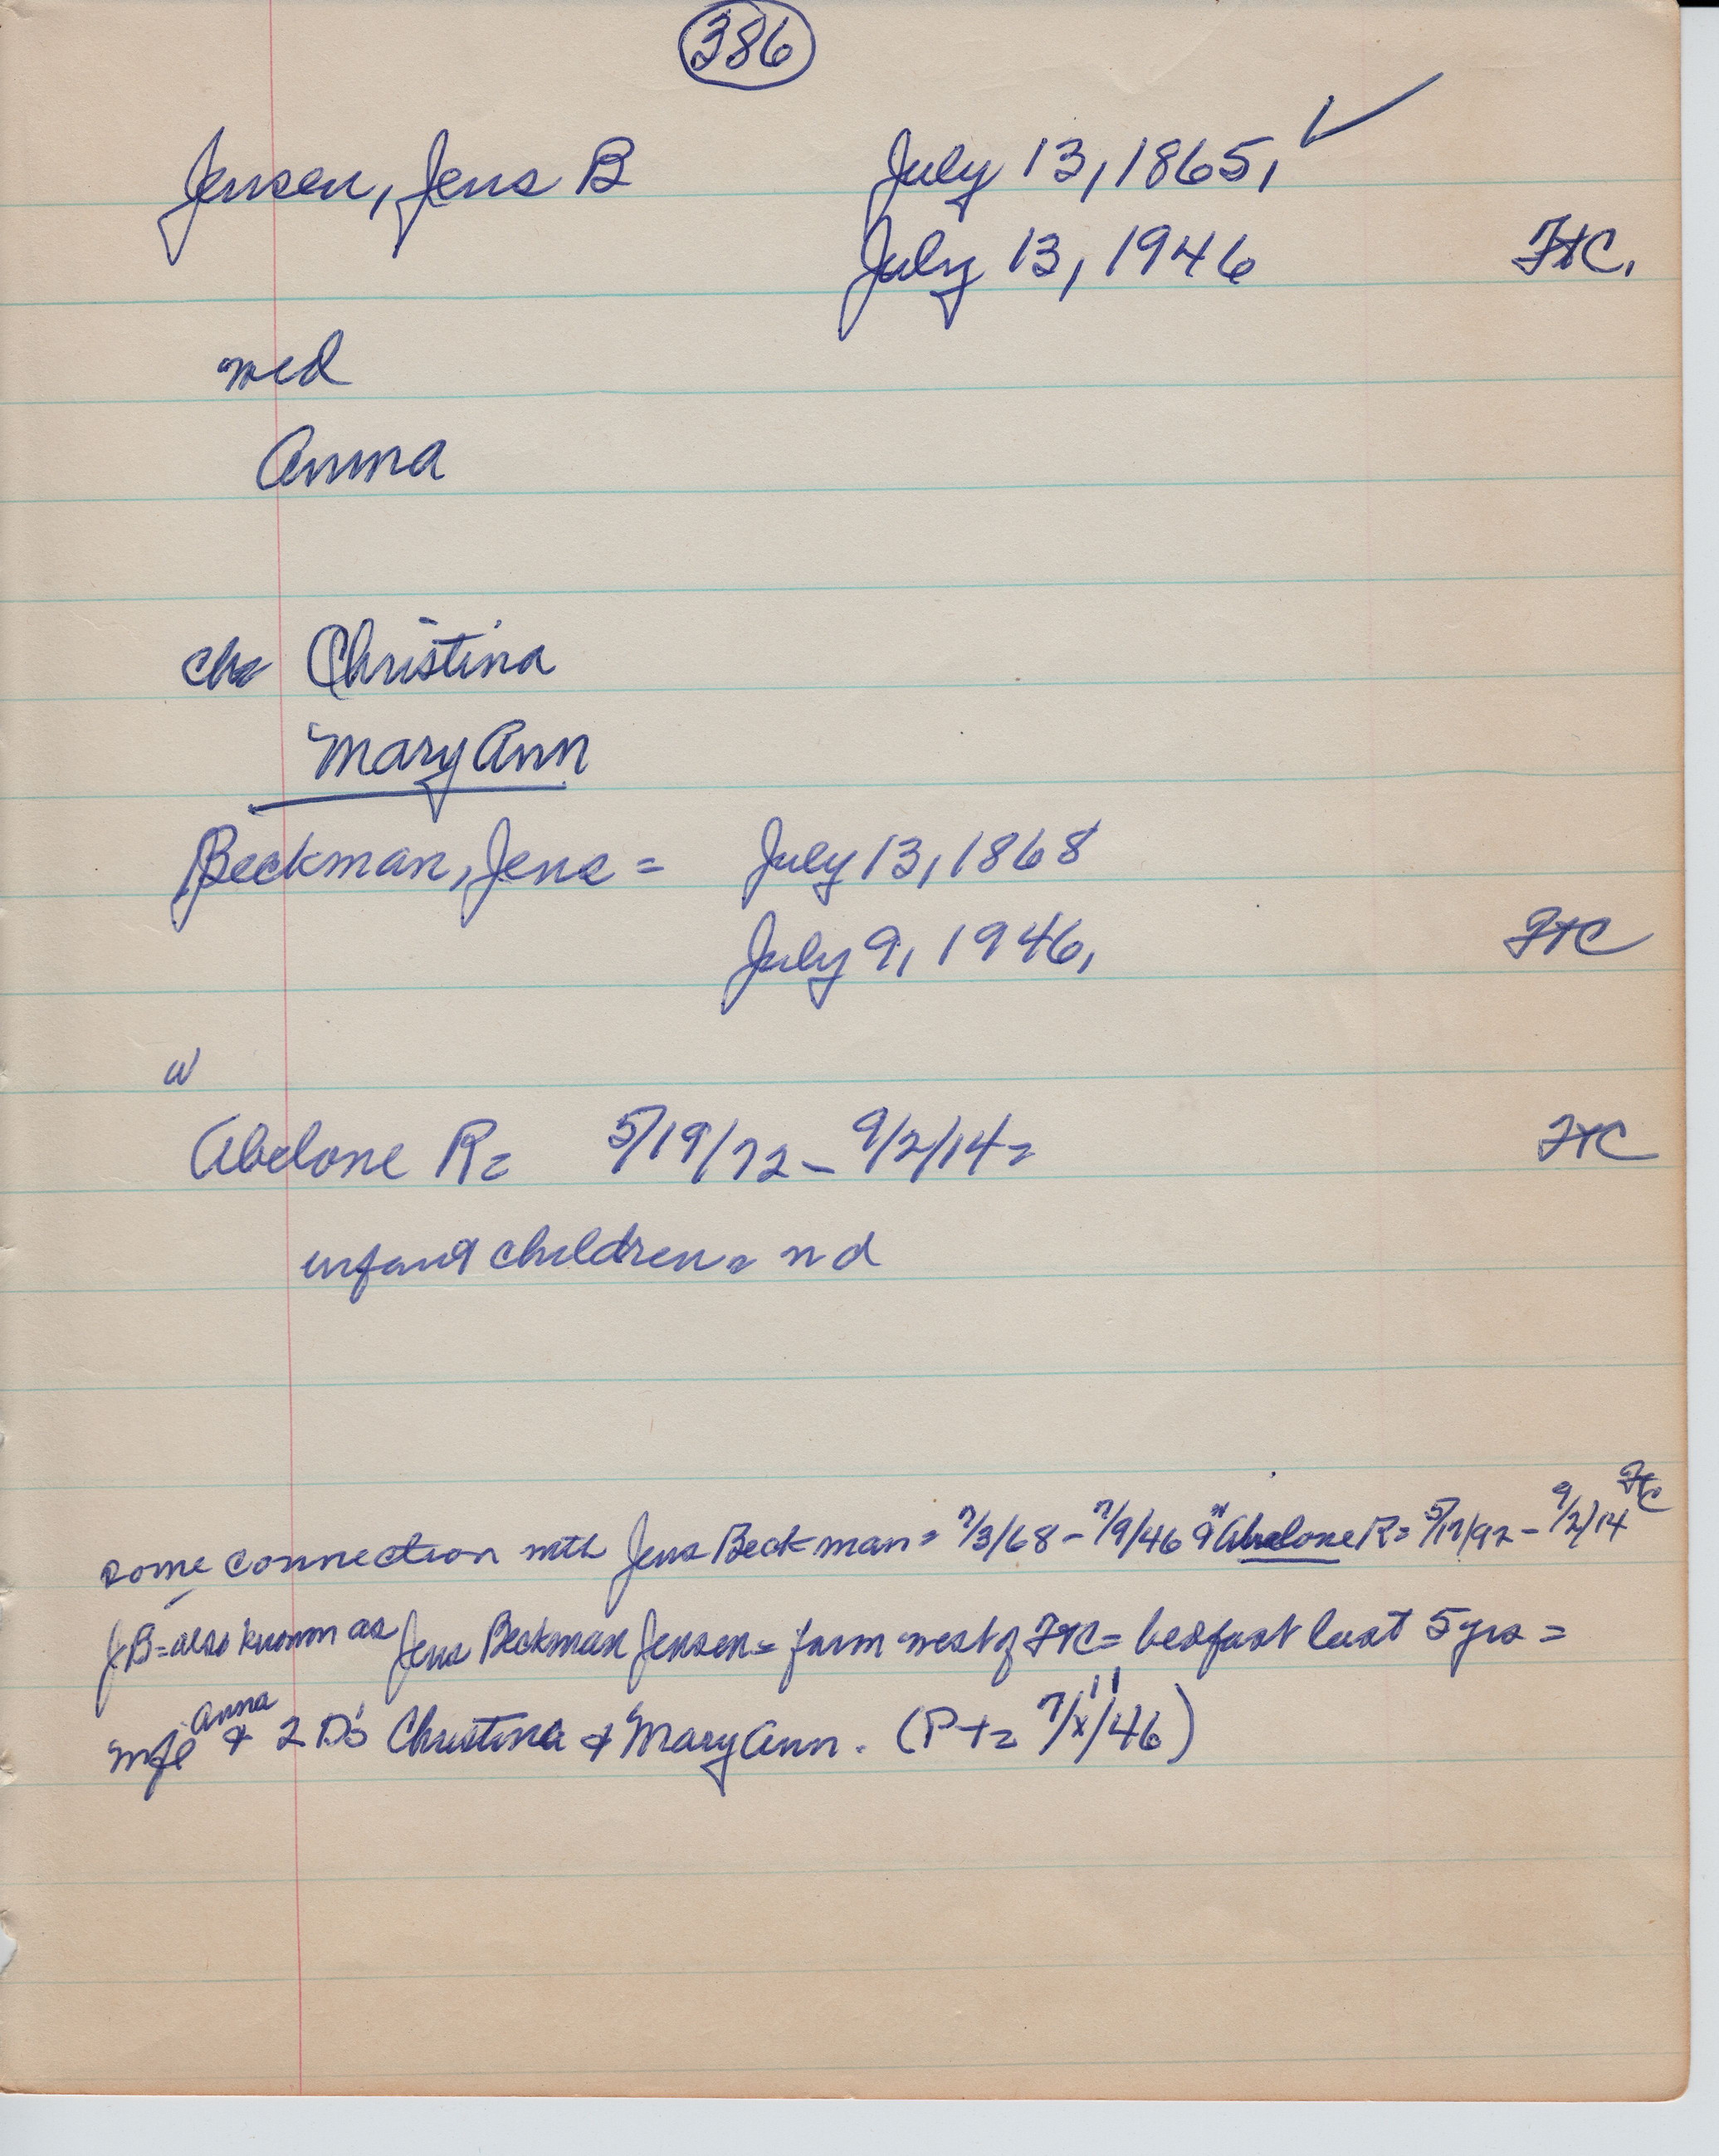 386
Jensen, Jens B July 13, 1865, ✓
July 13, 1946 FtC.
med
Anna
ch Christina
Mary Ann
Beckman, Jens = July 13, 1868
July 9, 1946, FtC
w
Abelone R= 5/19/72 - 9/2/14= FtC
infant children = nd
some connection with Jens Beckman = 7/3/68 - 7/9/46 & Abelone R= 5/19/92 - 9/2/14 FtC
JB = also known as Jens Beckman Jensen = farm west of FtC = bedfast last 5 yrs =
wife Anna & 2 D's Christina & Mary Ann. (P+= 7/11/46)